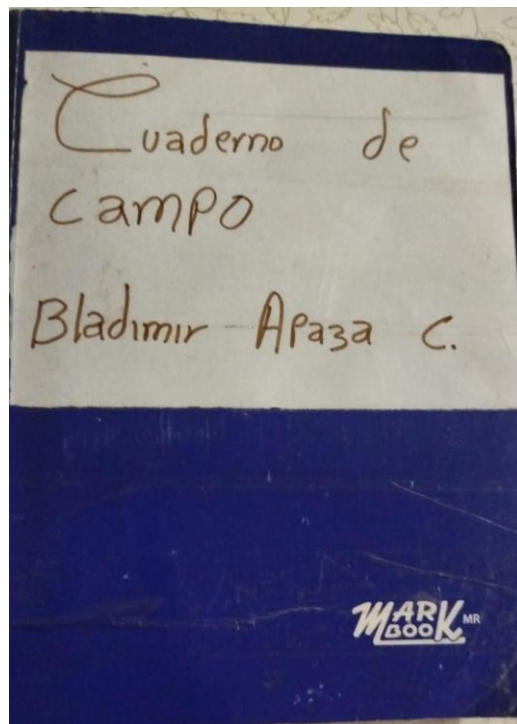 Cuaderno de
campo
Bladimir Apaza C.
MARK MR
BOOK